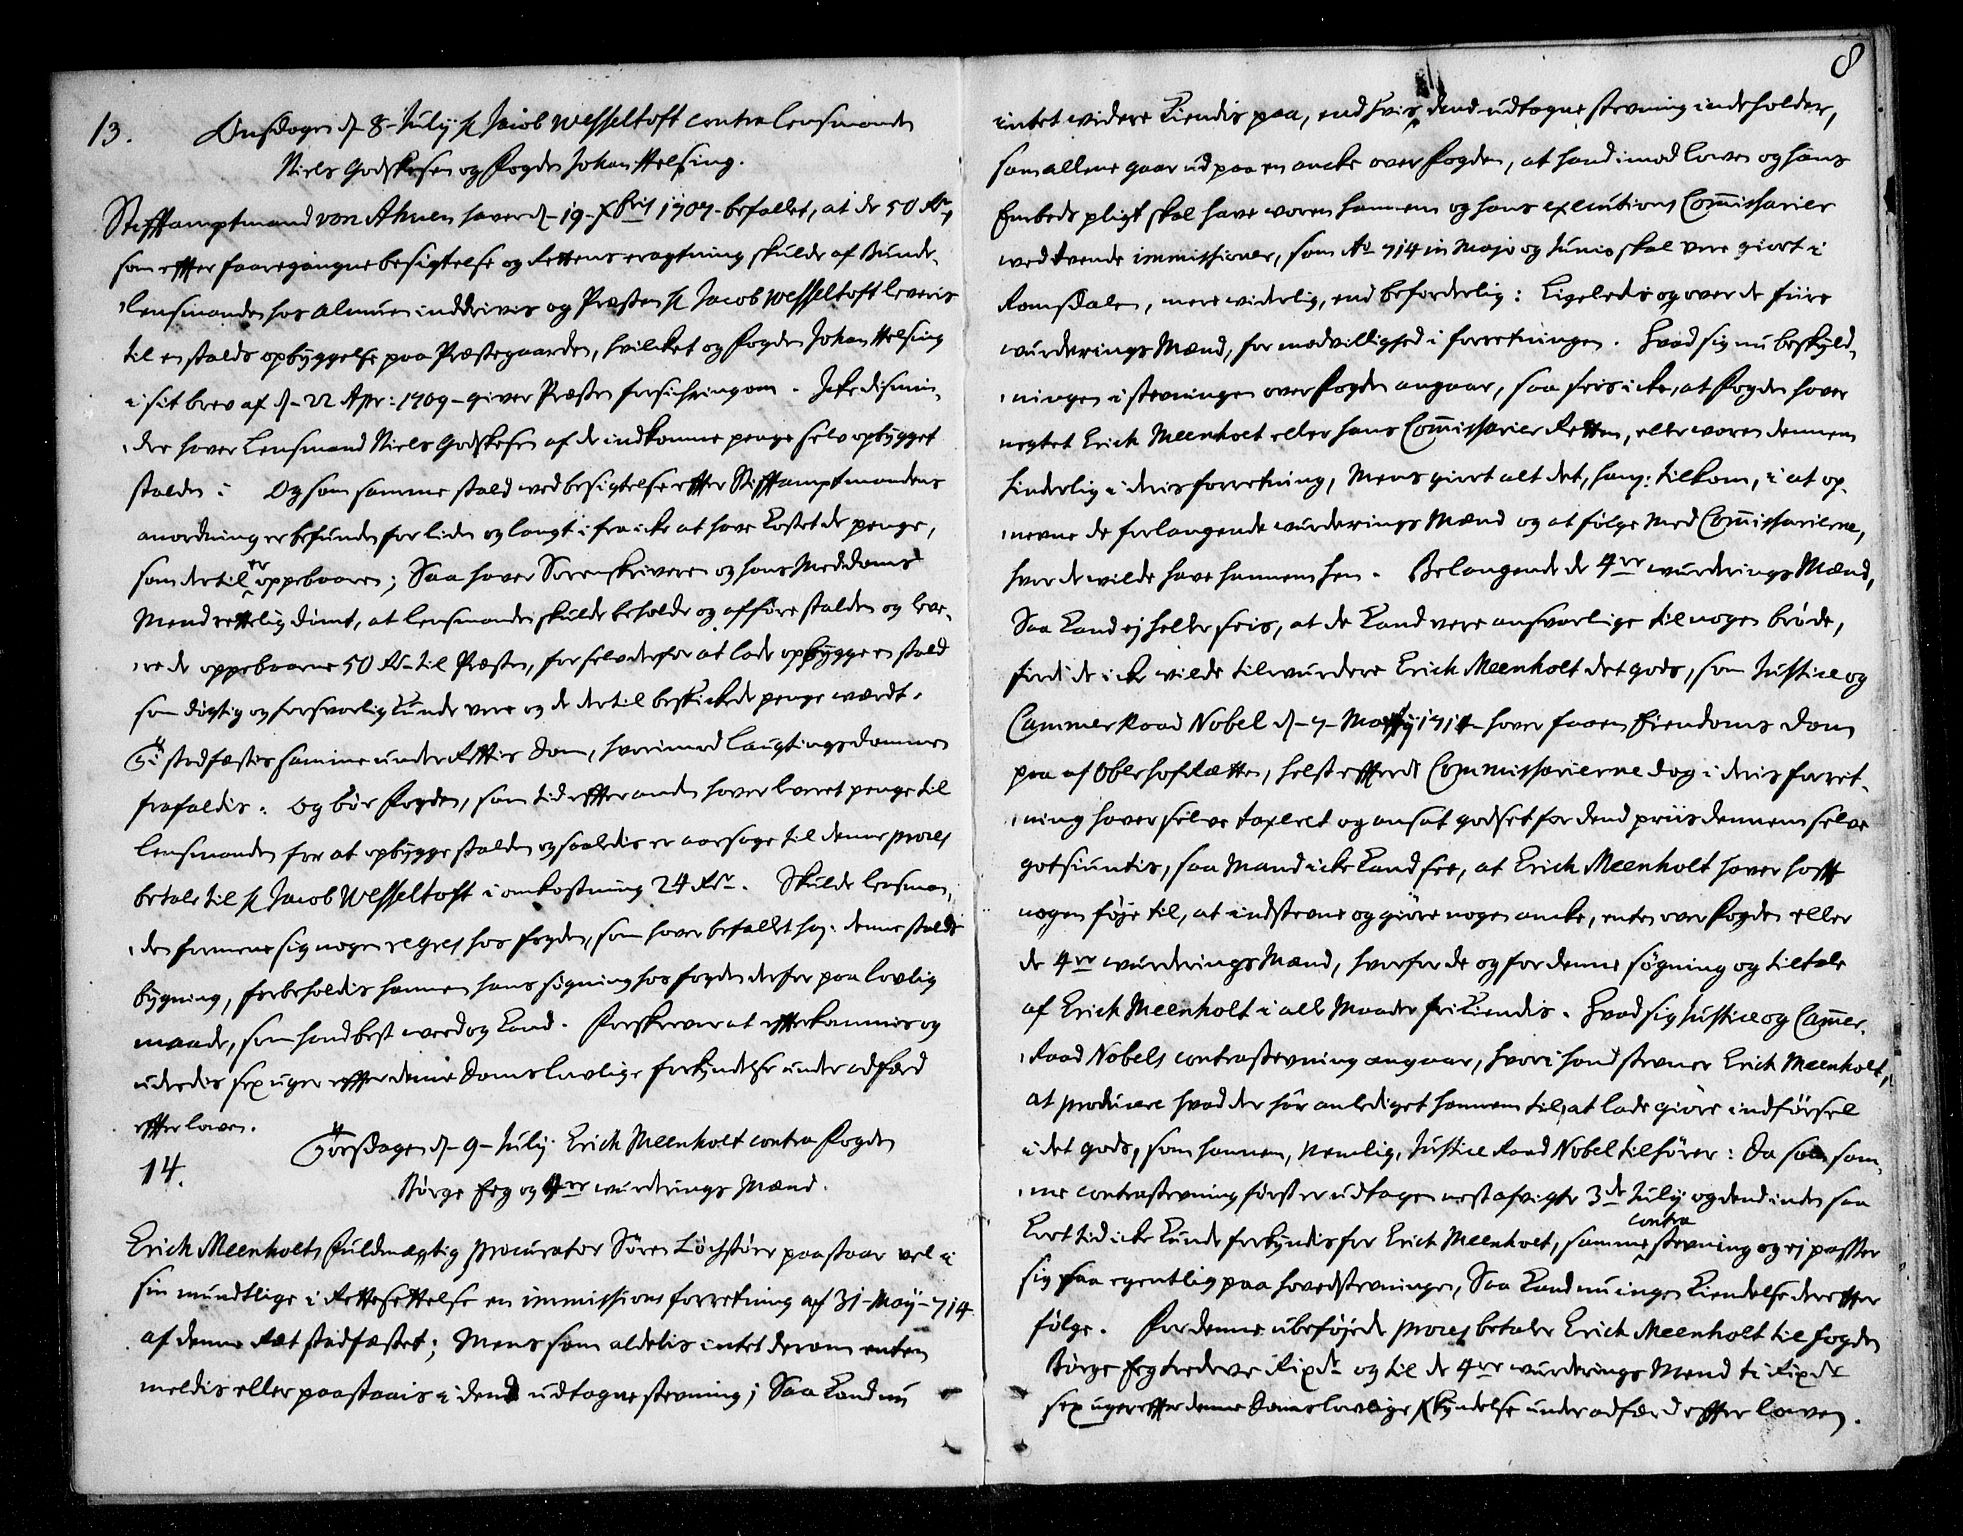 13. Onsdagen d. 8 July hr Jacob Wesseltoft contra Lensmanden
Niels Godskesen og Fogden Johan Helsing.
Stifftamptmand von Ahnen haver d. 19 Xbris 1707 befallet, at de 50 Rdr,
som effter foregangne besigtelse og Rettens eragtning skulde af Bunde-
lensmanden hos Almuen inddrivis og Præsten hr Jacob Wesseltoft leveris
til en stalds opbyggelse paa Præstegaarden, hvilcket og Fogden Johan Helsing
i sit brev af d. 22 Apr: 1709 giver Præsten forsichring om. Icke dismin-
dre haver Lensmand Niels Godskesen af de indkomne penge selv opbygget
stalden: Og som samme stald ved besigtelse effter Stifftamptmandens
anordning er befunden for liden og langt i fra icke at have kostet de penge,
som dertil er oppebaaren; Saa haver Sorenskriveren og hans Meddoms
Mend rettelig dømt, at lensmanden skulde beholde og afføre stalden og leve-
re de oppebaarne 50 Rdr til Præsten, for selv derfor at lade opbygge en stald
som dygtig og forsvarlig kunde vere og de dertil beskickede penge værdt.
Thi stadfæstes samme underrettis dom, hvorimod laugtings dommen
frafaldis: og bør Fogden, som tid effter anden haver leveret penge til
lensmanden for at opbygge stalden og saaledis er aarsage til denne proces
betale til hr Jacob Wesseltoft i omkostning 24 Rdr. Skulde lensman-
den formene sig nogen regres hos fogden, som haver befallet ham denne stalds
bygning, forbeholdis hannem hans søgning hos fogden derfor paa lovlig
maade, som hand best veed og kand. Forskrevne at efterkommis og
uderedis sex uger effter denne Doms lovlige forkyndelse under adfærd
effter loven.
14. Torsdagen d. 9 July Erich Meenholt contra Fogden
Børge Feg og 4re wurderings Mænd.
Erich Meenholts Fuldmægtig procurator Sören Löchstör paastaar vel i
sin mundtlige i Rettesettelse en immissions forretning af 31 May 714
af denne Ret stadfæstet; Mens som aldelis intet derom enten
meldis eller paastaais i dend udtagne stevning; Saa kand nu
8
intet videre kiendis paa, end hvis dend udtagne stevning indeholder,
som allene gaar ud paa en ancke over Fogden, at hand imod lowen og hans
Embeds pligt skal have voren hannem og hans executions Commissarier
ved tvende immissioner, som Ao 714 in Majo og Junio skal vere giort i
Romsdalen, mere widerlig, end beforderlig: Ligeledis og over de fiire
wurderings Mænd, for modvillighed i forretningen. Hvad sig nu beskyld-
ningen i stevningen over Fogden angaar, saa seis icke, at Fogden haver
negtet Erich Meenholt eller hans Commissarier Retten, eller voren dennem
hinderlig i deris forretning, Mens giort alt det, ham tilkom, i at op-
nevne de forlangende wurderings Mænd og at følge med Commissarierne,
hvor de wilde have hannem hen. Belangende de 4re wurderings Mænd,
Saa kand ej heller seis, at de kand vere ansvarlige til nogen brøde,
fordi de icke vilde tilwurdere Erich Meenholt det gods, som Justice og
Cammer Raad Nobel d. 7 Martij 1714 haver faaen Eiendoms dom
paa af Oberhofretten, helst effterdi Commissarierne dog i deris forret-
ning haver selve taxeret og ansat godset for dend priis dennem selve
gotsiuntis, saa mand icke kand see, at Erich Meenholt haver hafft
nogen føje til, at indstevne og giøre nogen ancke, enten over Fogden eller
de 4re wurderings Mænd, hvorfor de og for denne søgning og tiltale
af Erich Meenholt i alle Maader fri kiendis. Hvad sig Justice og Cammer-
Raad Nobels contrastevning angaar, hvori hand stevner Erich Meenholt,
at producere hvad der har anlediget hannem til, at lade giøre indførsel
i det gods, som hannem, nemlig, Justice Raad Nobel tilhører: Da som sam-
me contrastevning først er udtagen nest afvigte 3de July og dend inden saa
kort tid icke kunde forkyndis for Erich Meenholt, samme contra stevning og ej passer
sig saa egentlig paa hovedstevningen, Saa kand nu ingen kiendelse dereffter
følge. For denne ubeføjede proces betaler Erich Meenholt til fogden
Børge Feg tredeve Rixdr og til de 4re wurderings Mend ti Rixdr
sex uger effter denne Doms lovlige forkyndelse under adfærd effter loven.